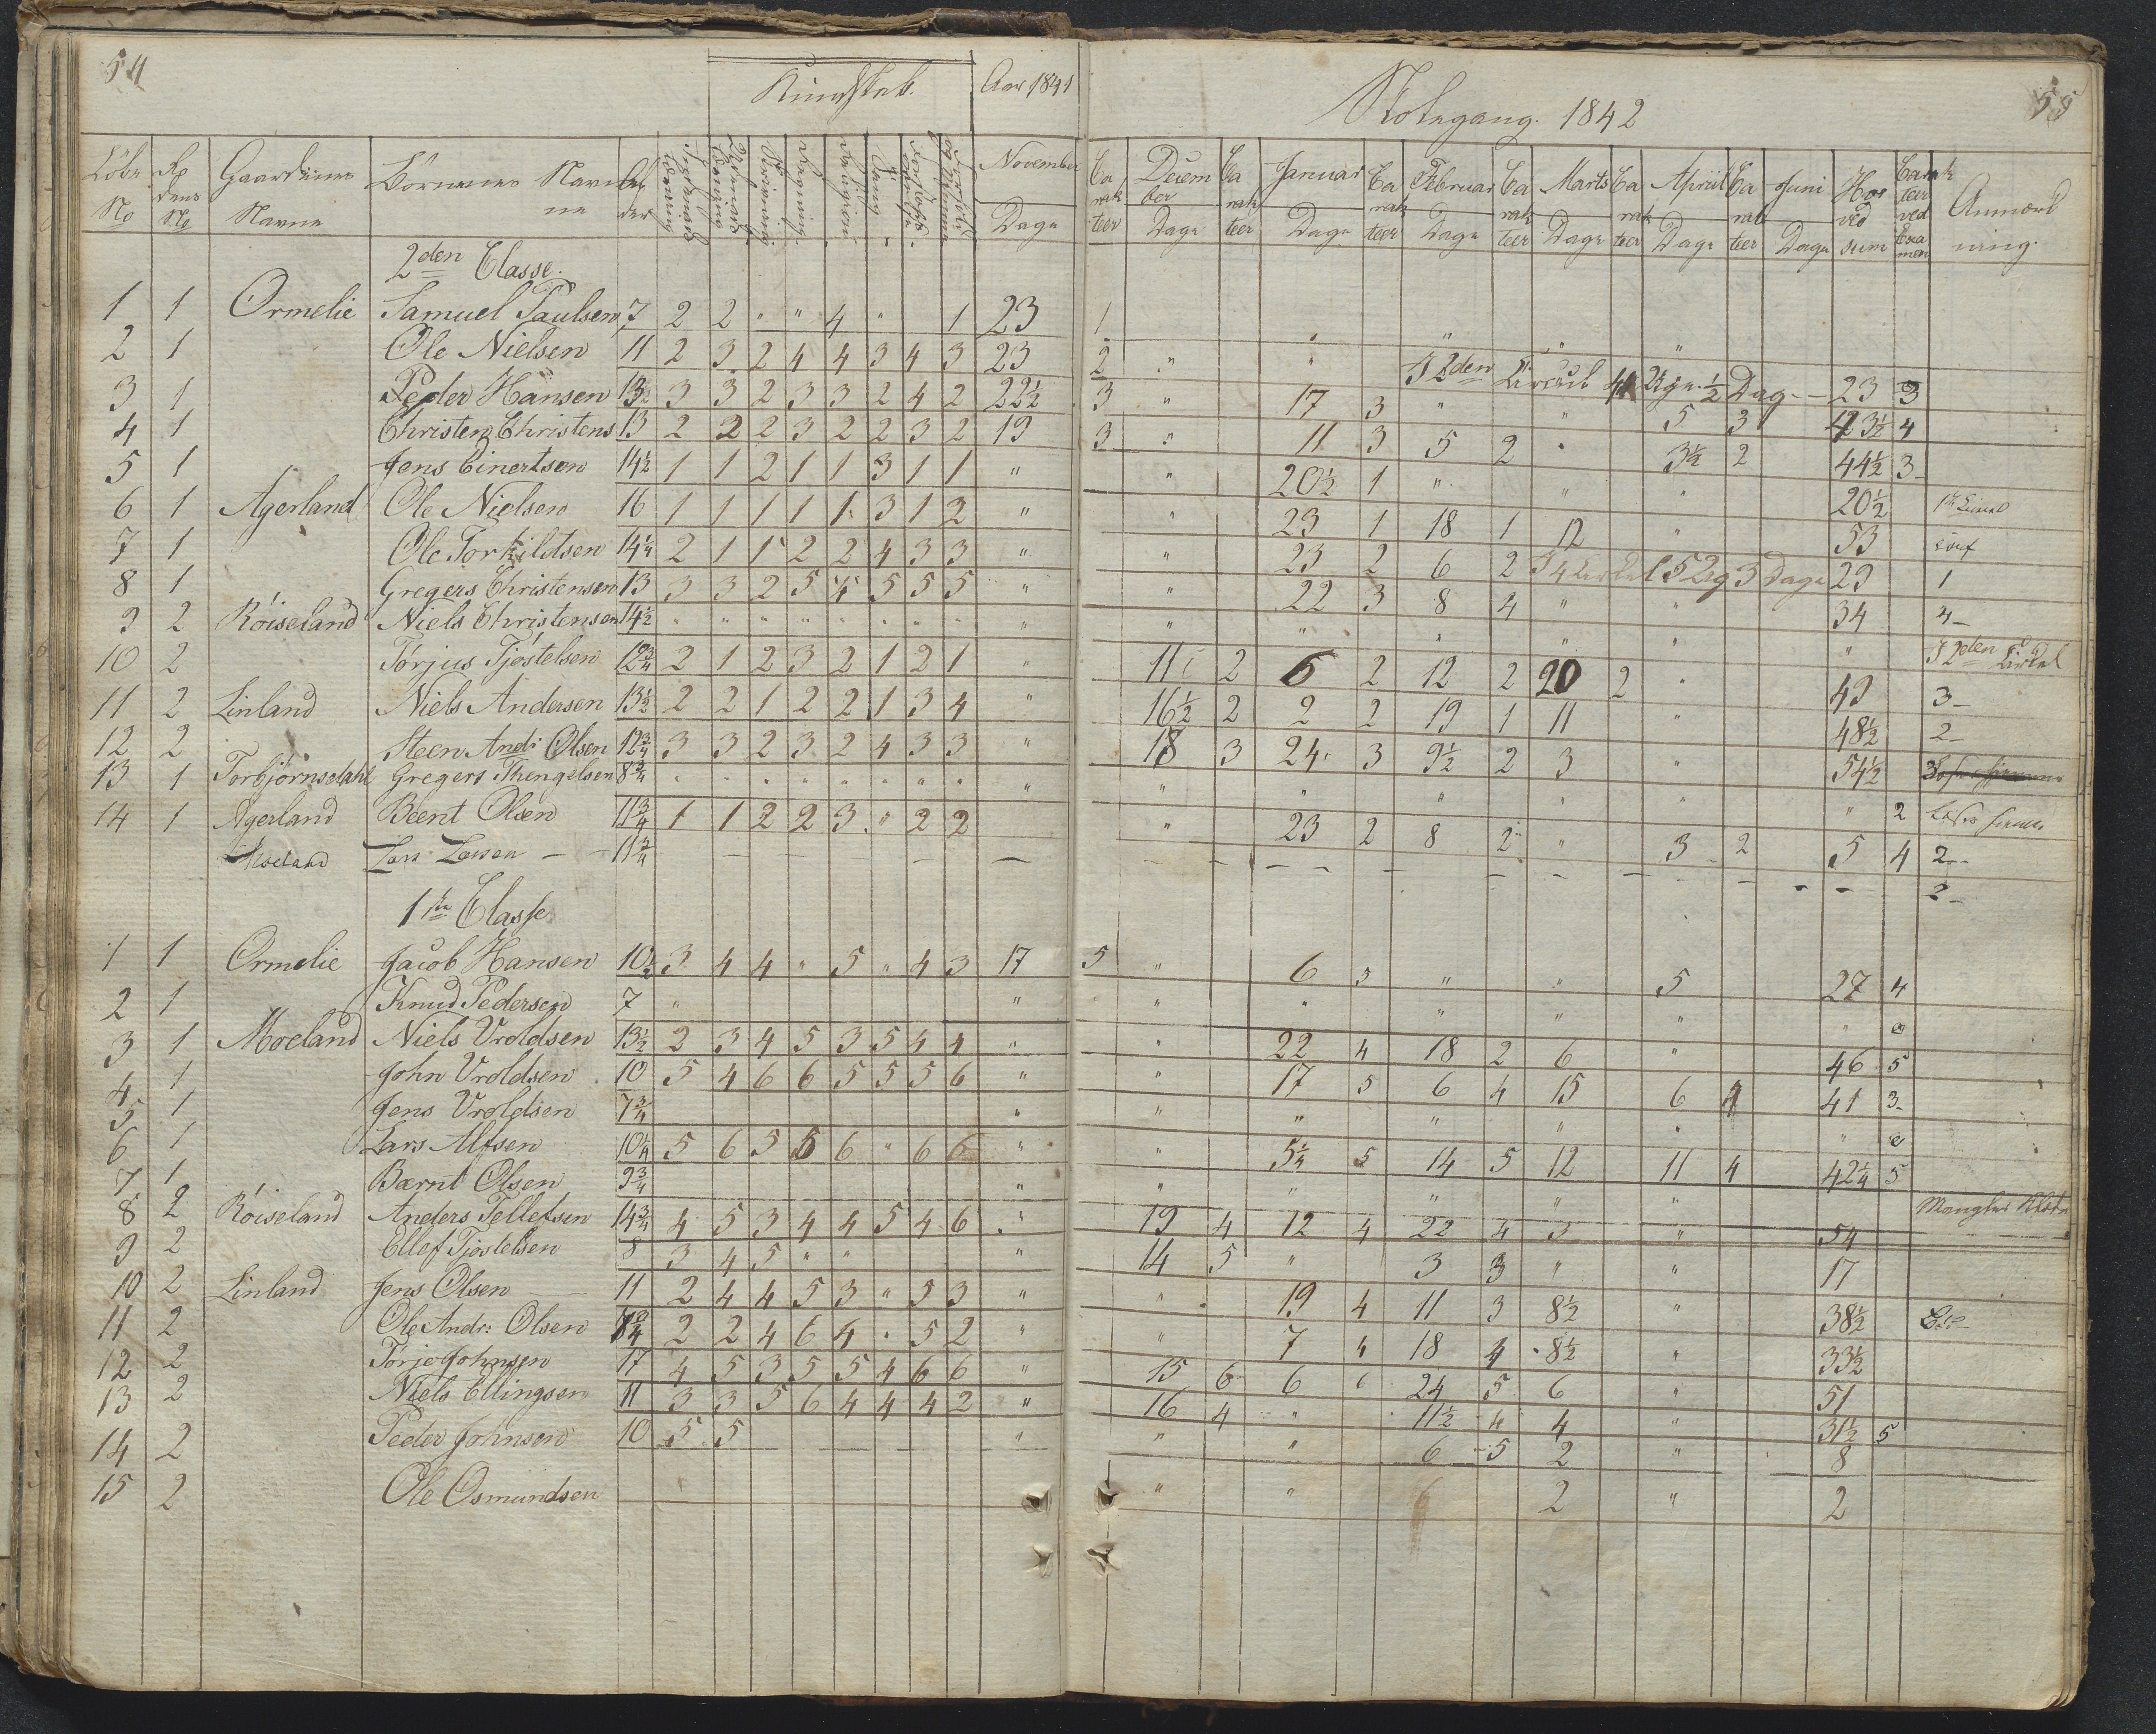 54
Kundskab. Aar 1841
Löbe No Rodens No Gaardenes Navne Börnenes Navne Alder November Dage
2den Classe.
1 1 Ormelie Samuel Paulsen 7 2 2 " " 4 " 1 23
2 1 Ole Nielsen 11 2 3 2 4 4 3 4 3 23
3 1 Peder Hansen 13½ 3 3 2 3 3 2 4 2 22½
4 1 Christen Christens 13 2 2 2 3 2 2 3 2 19
5 1 Jens Einertsen 14½ 1 1 2 1 1 3 1 1 "
6 1 Agerland Ole Nielsen 16 1 1 1 1 1 3 1 2 "
7 1 Ole Torkildsen 14¼ 2 1 1 2 2 4 3 3 "
8 1 Gregers Christensen 13 3 3 2 5 4 5 5 5 "
9 2 Röiseland Niels Christensen 14½ " " " " " " " " "
10 2 Törjus Tjöstelsen 12¾ 2 1 2 3 2 1 2 1 "
11 2 Linland Niels Andersen 13½ 2 2 1 2 2 1 3 4 "
12 2 Steen Andr: Olsen 12¾ 3 3 2 3 2 4 3 3 "
13 1 Torbjörnsdahl Gregert Thengelsen 8¾ " " " " " " " " "
14 1 Agerland Beent Olsen 11¾ 1 1 2 2 3 " 2 2
Moeland Lars Larsen 11¾
1ste Classe
1 1 Ormelie Jacob Hansen 10½ 3 4 4 " 5 " 4 3 17
2 1 Knud Pedersen 7 " "
3 1 Moeland Niels Vroldsen 13½ 2 3 4 5 3 5 4 4 "
4 1 John Vroldsen 10 5 4 6 6 5 5 5 6 "
5 1 Jens Vroldsen 7¾ "
6 1 Lars Alfsen 10¼ 5 6 5 5 6 " 6 6 "
7 1 Barnt Olsen 9¾ "
8 2 Röiseland Anders Tellefsen 14¾ 4 5 3 4 4 5 4 6 "
9 2 Ellef Tjöstelsen 8 3 4 5 " " "
10 2 Linland Jens Olsen 11 2 4 4 5 3 " 5 3 "
11 2 Ole Andr: Olsen 2 2 4 6 4 " 5 2 "
12 2 Törje Johnsen 17 4 5 3 5 5 4 6 6 "
13 2 Niels Ellingsen 11 3 3 5 6 4 4 4 2 "
14 2 Peder Johnsen 10 5 5 "
15 2 Ole Osmundsen
55
Skolegang. 1842
Carakteer December Dage Carakteer Januar Dage Carakteer Februar Dage Carakteer Marts Dage Carakteer April Dage Carakteer Juni Dage Carakteer ved Examen Anmærkning.
1 " " " "
2 " " I 2den Cirkel ½ Dag 23 3
3 " 17 3 " " 5 3 3½ 4
3 " 11 3 5 2 " 3½ 2 44½ 3
" 20½ 1 " " " 20½
" 23 1 18 1 12 " 53
" 23 2 6 2 5 3 Dage 29 1
" 22 3 8 4 " " 34 4
" " " " " " I 2den Cirkel
11 2 6 2 12 2 20 2 " 49 3
16½ 2 2 2 19 1 11 " 48½ 2
18 3 24 3 9½ 2 3 " 54½ 3
" " " " " " 2
" 23 2 8 2 " 3 2 5 4 2
2
5 " 6 5 " " 5 27 4
" " " " " "
" 22 4 18 2 6 " 46 5
" 17 5 6 4 15 6 4 41 3
" " " " " "
" 5¼ 5 14 5 12 11 4 42¼ 5
" " " " "
19 4 12 4 22 4 3 " 54
14 5 " 3 3 " " 17
" 19 4 11 3 8½ " 38½
" 7 4 18 4 8½ " 33½
15 6 6 6 24 5 6 " 51
16 4 " 11½ 4 4 " 31½ 5
" " 6 5 2 " 8
" " 2 " 2